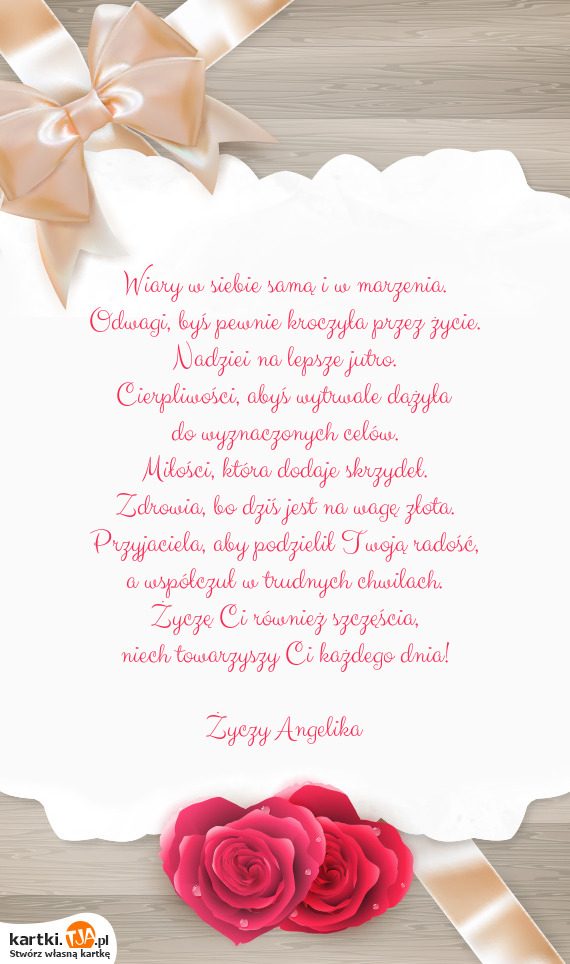 Wiary w siebie samą i w marzenia.
Odwagi, byś pewnie kroczyła przez życie.
Nadziei na lepsze jutro.
Cierpliwości, abyś wytrwale dążyła
do wyznaczonych celów.
Miłości, która dodaje skrzydeł.
Zdrowia, bo dziś jest na wagę złota.
Przyjaciela, aby podzielił Twoją radość,
a współczuł w trudnych chwilach.
Życzę Ci również szczęścia,
niech towarzyszy Ci każdego dnia!
Życzy Angelika
kartki.TJA.pl
Stwórz własną kartkę